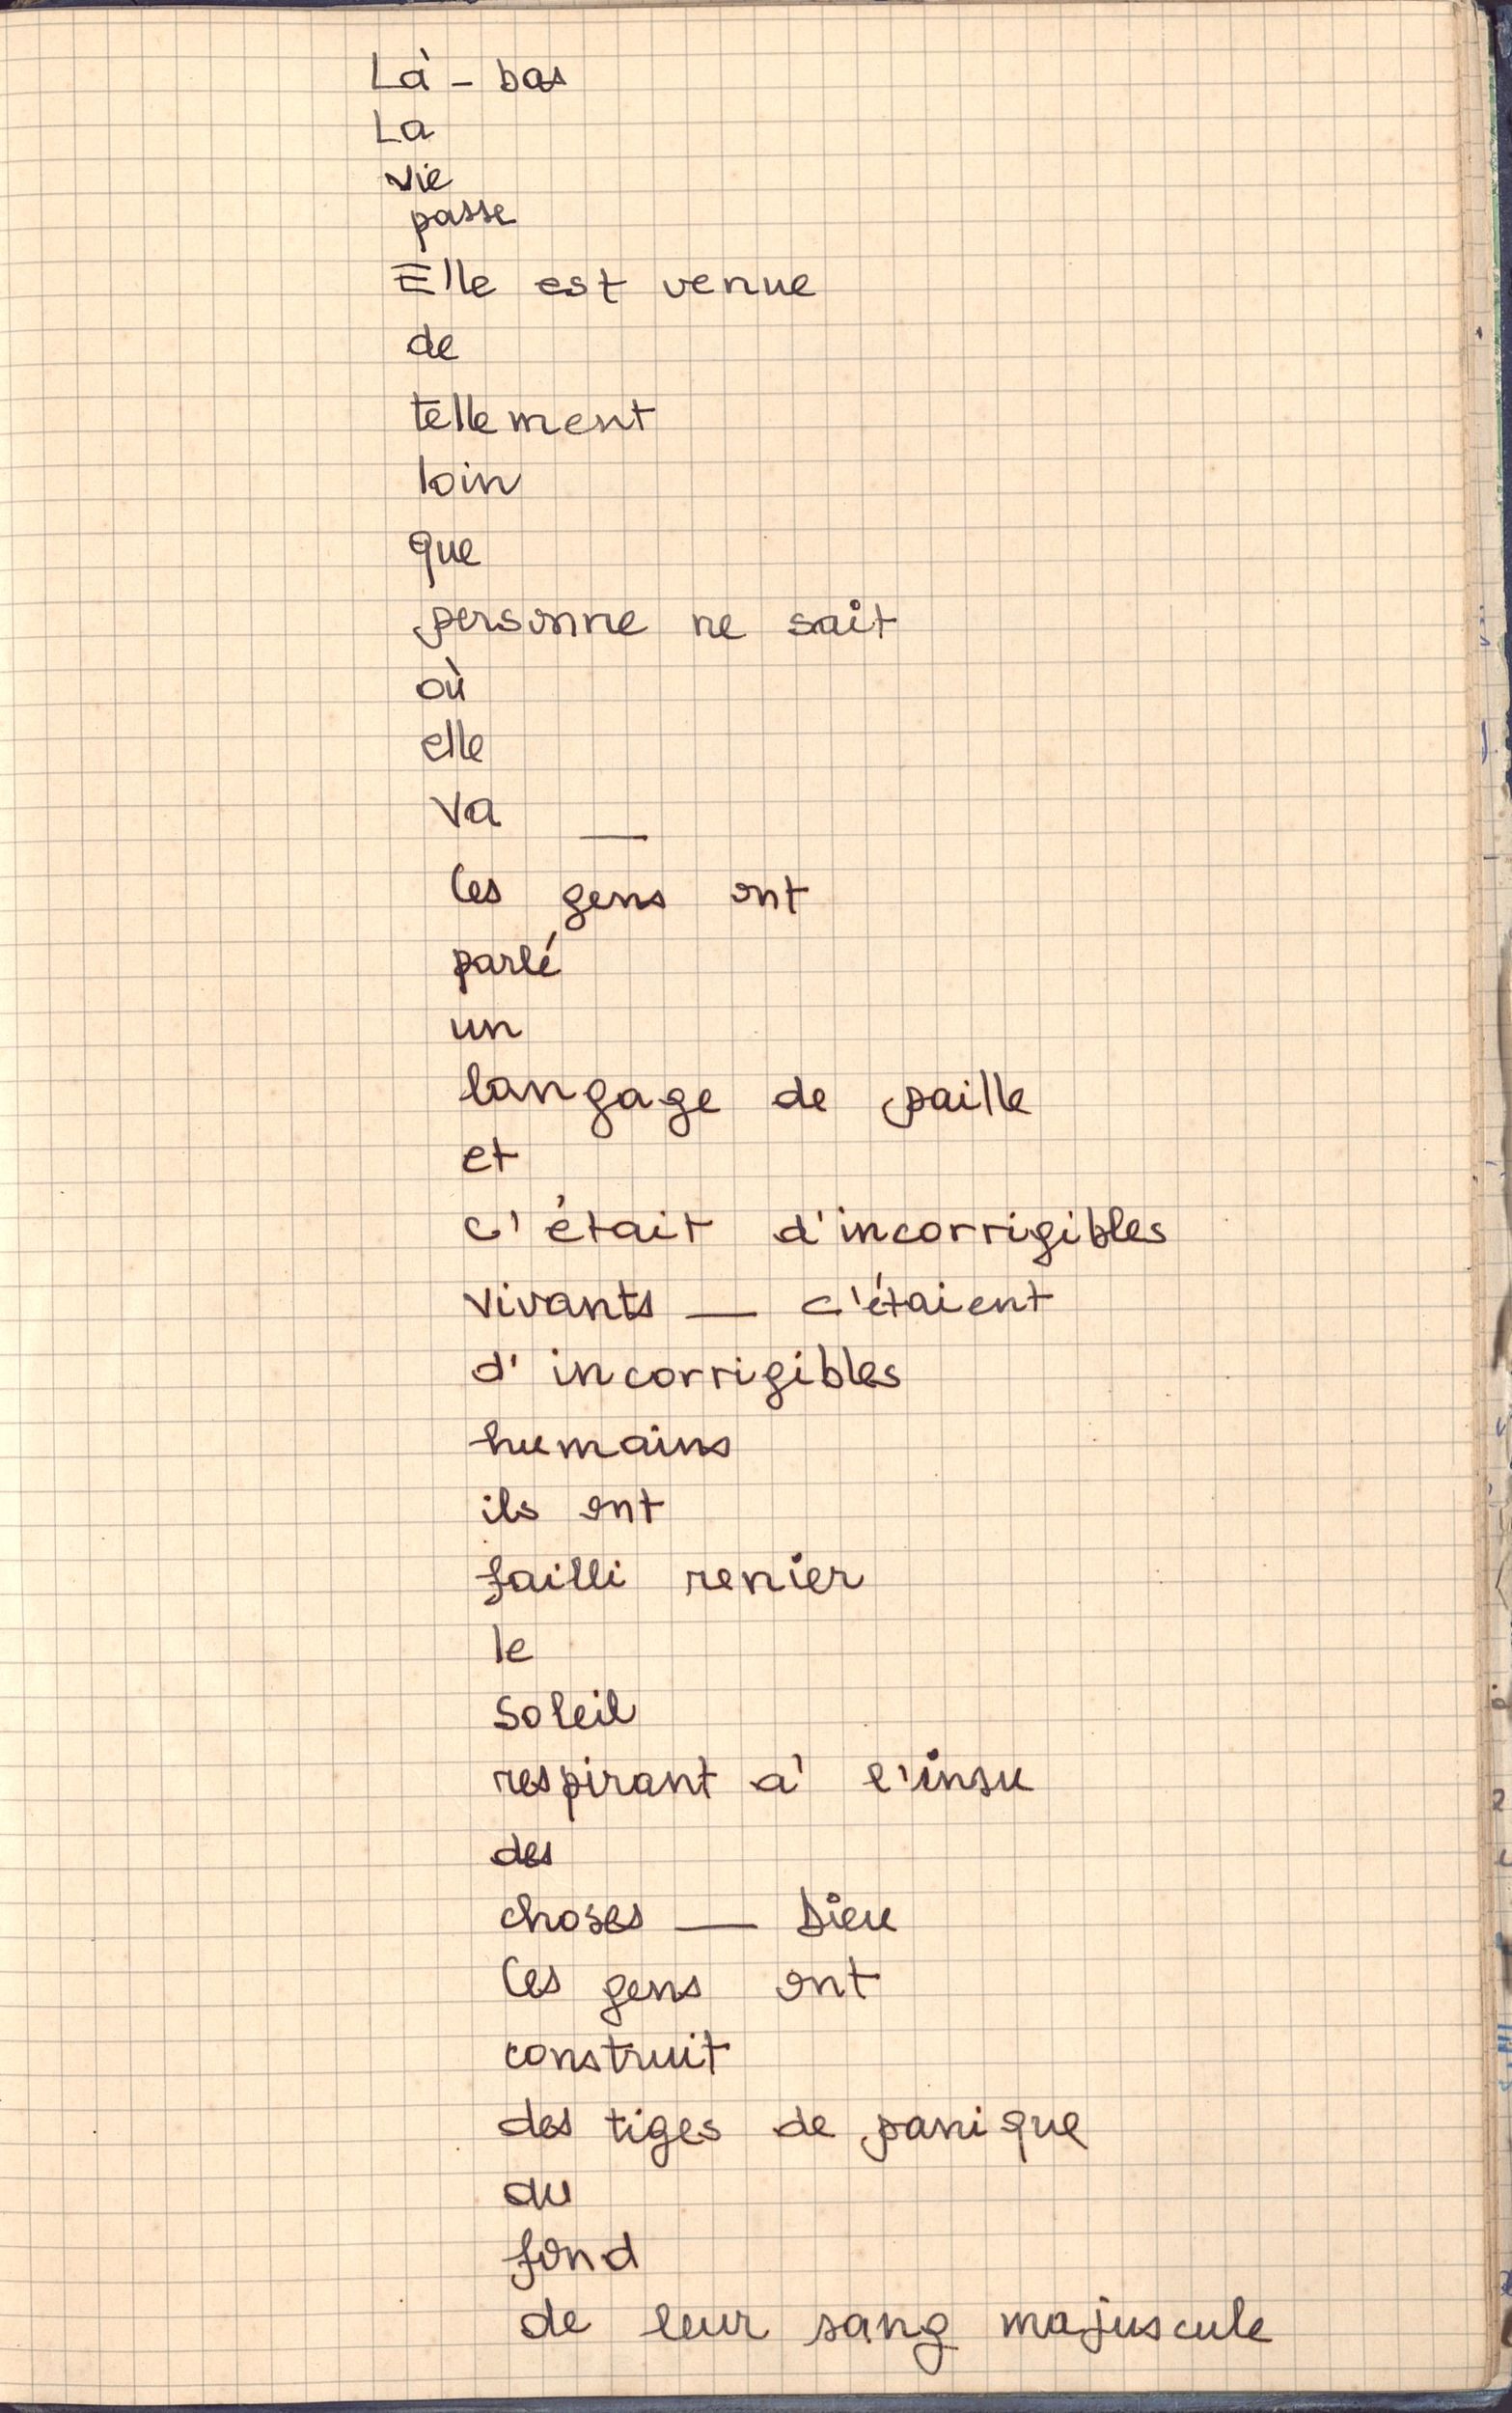 Là - bas
La
vie
passe
Elle est venue
de
tellement
loin
que
personne ne sait
où
elle
va —
Ces gens ont
parlé
un
langage de paille
et
c'était d'incorrigibles
vivants — c'étaient
d'incorrigibles
humains
ils ont
failli renier
le
soleil
respirant à l'insu
des
choses — Dieu
Ces gens ont
construit
des tiges de panique
du
fond
de leur sang majuscule